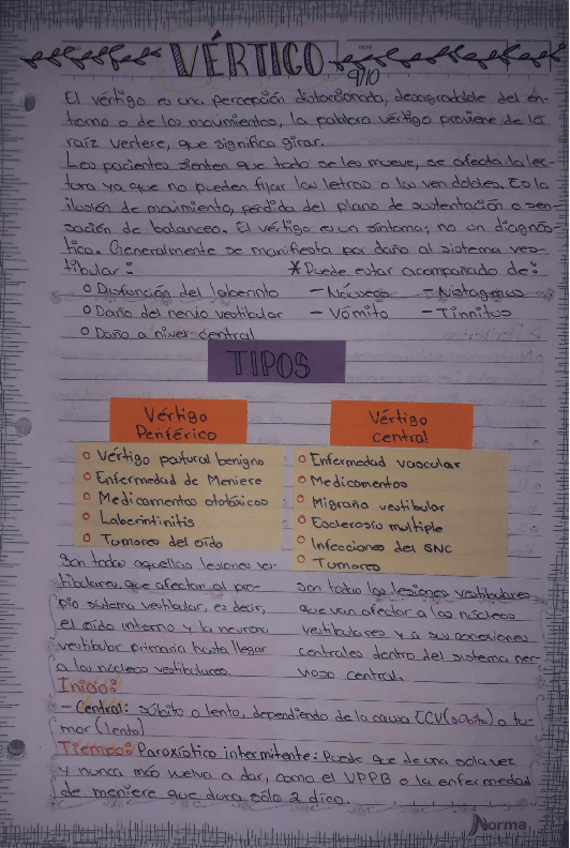 VÉRTIGO
9/10
El vértigo es una percepción distorsionada, desagradable del en-
torno o de los movimientos, la palabra vértigo proviene de la
raíz vertere, que significa girar.
Los pacientes sienten que todo se les mueve, se afecta la lec-
tura ya que no pueden fijar las letras o las ven dobles. Es la
ilusión de movimiento, pérdida del plano de sustentación o sen-
sación de balanceo. El vértigo es un síntoma, no un diagnós-
tico. Generalmente se manifiesta por daño al sistema ves-
tibular: *Puede estar acompañado de:
o Disfunción del laberinto - Náuseas - Nistagmus
o Daño del nervio vestibular - Vómito - Tinnitus
o Daño a nivel central
TIPOS
Vértigo
Periférico
o Vértigo postural benigno
o Enfermedad de Meniere
o Medicamentos ototóxicos
o Laberintinitis
o Tumores del oído
Son todas aquellas lesiones ves-
tibulares que afectan al pro-
pio sistema vestibular, es decir,
el oído interno y la neurona
vestibular primaria hasta llegar
a los núcleos vestibulares.
Vértigo
central
o Enfermedad vascular
o Medicamentos
o Migraña vestibular
o Esclerosis multiple
o Infecciones del SNC
o Tumores
Son todas las lesiones vestibulares
que van afectar a los núcleos
vestibulares y a sus conexiones
centrales dentro del sistema ner-
vioso central.
Inicio:
- Central: súbito o lento, dependiendo de la causa ECV(súbito) o tu-
mor (lento)
Tiempo: Paroxístico intermitente: Puede que de una sola vez
y nunca más vuelva a dar, como el VPPB o la enfermedad
de meniere que dura sólo 2 días.
Norma